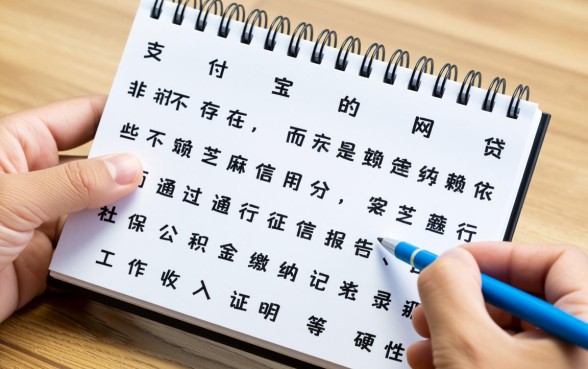 支付宝的网贷
非不存在，而是纳赖依
些不芝麻信用分，芝行
通过通行征信报告，
社保公积金缴纳记录
工作收入证明等硬性